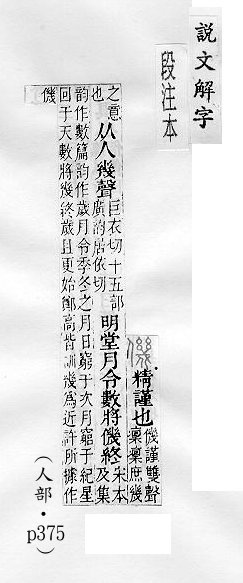 說文解字
段注本
僟 精謹也
僟謹雙聲
稟稟庶幾
之意
也
从人幾聲
巨衣切十五部
廣韵居依切
明堂月令數將僟終
宋本
及集
韵作數篇韵作歲月令季冬之月日窮于次月窮于紀星
回于天數將幾終歲且更始鄭高皆訓幾爲近許所據作
僟
(人部・p375)